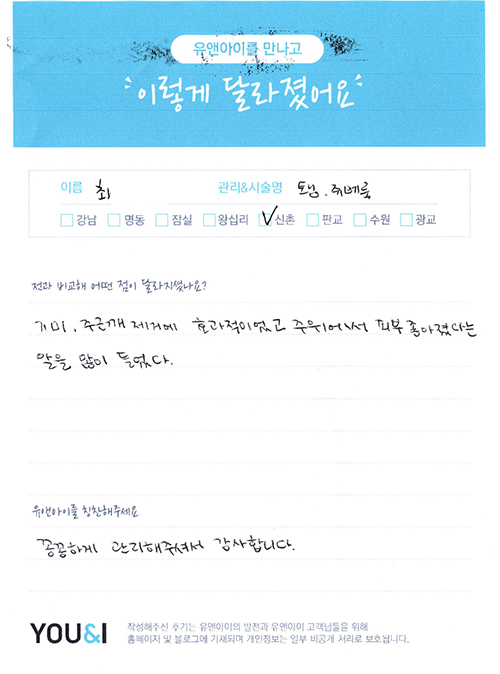 유앤아이를 만나고
이렇게 달라졌어요
이름 최 관리&시술명 토닝. 쥬베룩
강남 명동 잠실 왕십리 신촌 판교 수원 광교
전과 비교해 어떤 점이 달라지셨나요?
기미, 주근깨 제거에 효과적이었고 주위에서 피부 좋아졌다는
말을 많이 들었다.
유앤아이를 칭찬해주세요
꼼꼼하게 관리해주셔서 감사합니다.
YOU&I
작성해주신 후기는 유앤아이의 발전과 유앤아이 고객님들을 위해
홈페이지 및 블로그에 기재되며 개인정보는 일부 비공개 처리로 보호됩니다.